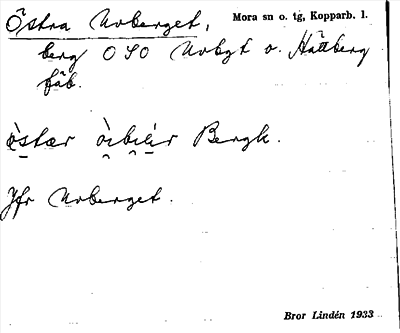 Östra Urberget, Mora sn o. tg, Kopparb. l.
berg OSO Urbgt o. Hättberg
fäb.
östær Bergk.
Jfr Urberget.
Bror Lindén 1933